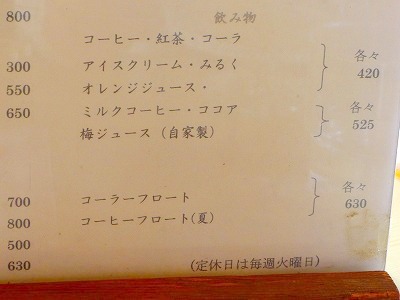 800
飲み物
コーヒー・紅茶・コーラ
300 アイスクリーム・みるく 各々
550 オレンジジュース・ 420
650 ミルクコーヒー・ココア 各々
梅ジュース（自家製） 525
700 コーラーフロート 各々
800 コーヒーフロート(夏) 630
500
630 (定休日は毎週火曜日)